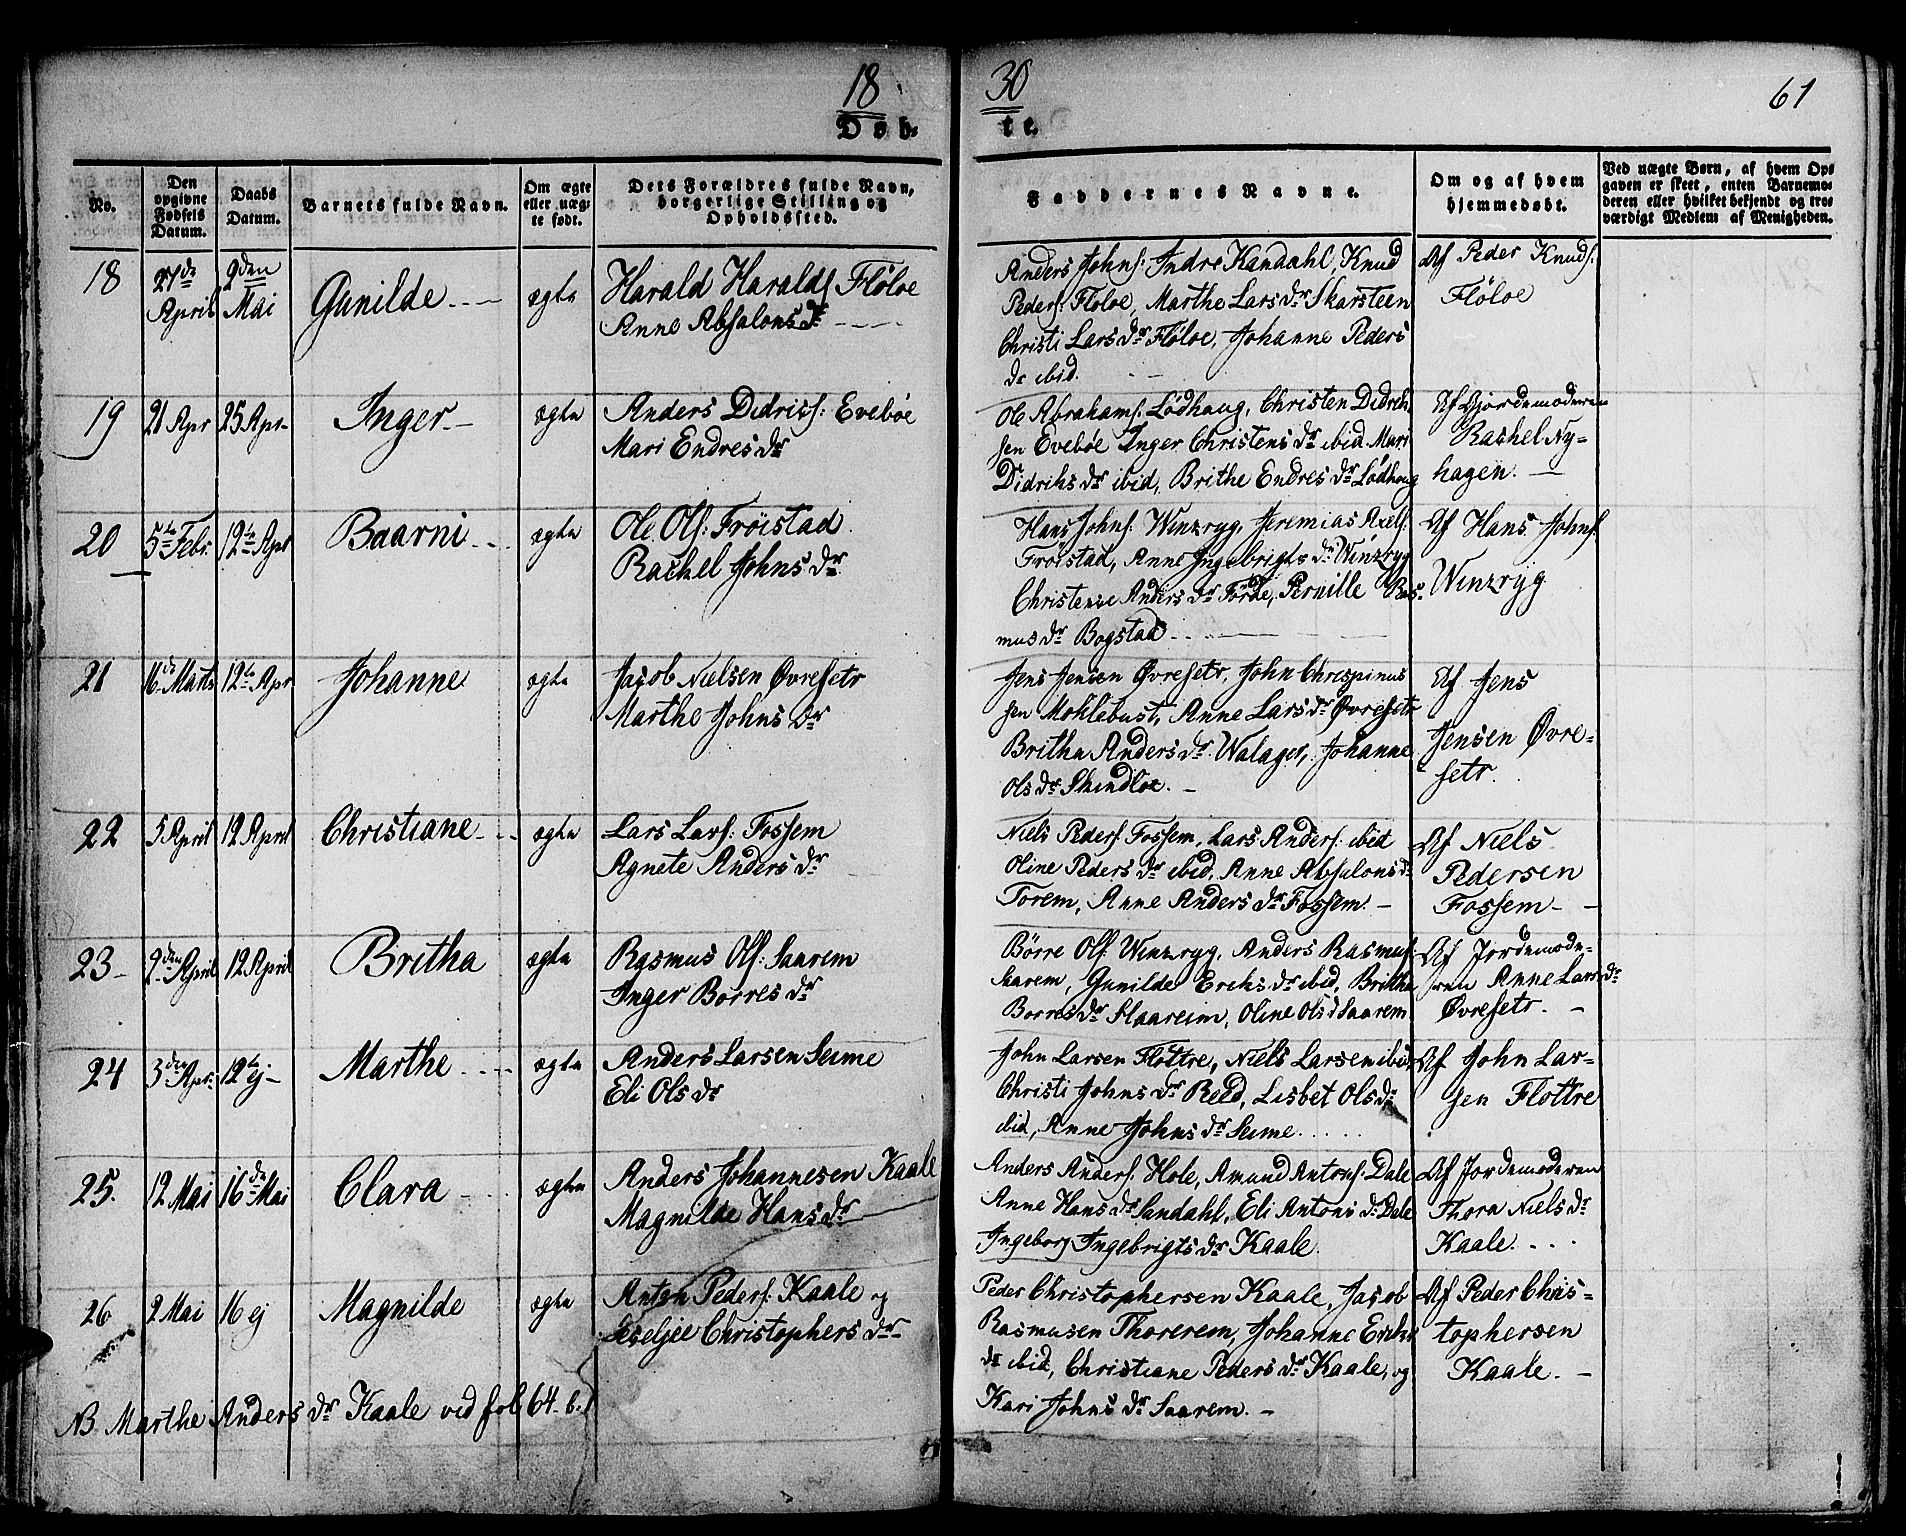 18 30 61
Døb- te.
No.
Den opgivne Fødsels Datum.
Daabs Datum.
Barnets fulde Navn.
Om ægte eller uægte født.
Dets Forældres fulde Navn, borgerlige Stilling og Opholdssted.
Faddernes Navne.
Om og af hvem hjemmedøbt.
Ved uægte Børn, af hvem Opgaven er skeet, enten Barnemoderen eller hvilket bekjendt og troværdigt Medlem af Menigheden.
18 27de April 2den Mai Gunilde ægte
Harald Haralds Fløloe
Anne Absalons dr
Anders Johns: Indre Kandahl, Knud
Peders: Floloe, Marthe Lars dr Skarsteen
Christi Lars dr Fløloe, Johanne Peders
dr ibid.
Af Peder Knuds:
Fløloe
19 21 Apr 25 Apr Inger ægte
Anders Didriss: Evebøe
Mari Endres dr
Ole Abrahams: Lødhaug, Christen Didrik-
sen Evebøe Inger Christens dr ibid. Mari
Didriks dr ibid, Brithe Endres dr Lødhaug
Af Gjordemoderen
Rachel Ny=
hagen.
20 5te Febr. 12te Apr Baarni ægte
Ole Ols: Frøistad
Rachel Johns dr
Hans Johns: Winzryg, Jeremias Axels:
Frøistad, Anne Ingebrigts dr Winzryg
Christense Anders dr Førde, Pernille Ras-
mus dr Bogstad
Af Hans Johns
Winzryg
21 16de Marts 12te Apr Johanne ægte
Jacob Nielsen Øvresetr
Marthe Johns dr
Jens Jensen Øvresetr, John Chrespinus
sen Moklebust, Anne Lars dr Øvresetr
Britha Anders dr Walager, Johanne
Ols dr Skindloe.
Af Jens
Jensen Øvre-
setr.
22 5 April 12 April Christiane ægte
Lars Lars: Fossem
Agnete Anders dr
Niels Peders Fossem, Lars Anders: ibid
Oline Peders dr ibid, Anne Absalons dr
Torem, Anne Anders dr Fossem
Af Niels
Pedersen
Fossem
23 2den April 12 April Britha ægte
Rasmus Ols: Saarem
Inger Børres dr
Børre Ols: Winzryg, Anders Rasmus:
Saarem, Gunilde Eriks dr ibid, Britha
Børres dr Haareim, Oline Ols d Saarem
Af Jordemode-
ren Anne Lars dr
Øvresetr.
24 3den Apr: 12te ej Marthe ægte
Anders Larsen Seime
Eli Ols dr
John Larsen Flottre, Niels Larsen ibid
Christi Johns dr Reed, Lisbet Ols dr
ibid, Anne Johns dr Seime
Af John Lar-
sen Flottre
25. 12 Mai 16de Mai Clara ægte
Anders Johannesen Kaale
Magnilde Hans dr
Anders Anders: Hole, Amund Antons: Dale
Anne Hans dr Sandahl, Eli Antons dr Dale
Ingeborg Ingebrigts dr Kaale.
Af Jordemoderen
Thora Niels dr
Kaale.
26 2 Mai 16 ej Magnilde ægte
Anton Peders: Kaale og
Seseljee Christophers dr
Peder Christophersen Kaale, Jacob
Rasmusen Thorerem, Johanne Eriks
dr ibid, Christiane Peders dr Kaale, og
Kari Johns dr Saarem.
Af Peder Chris-
tophersen
Kaale.
NB. Marthe Anders dr Kaale ved fol: 64. b.